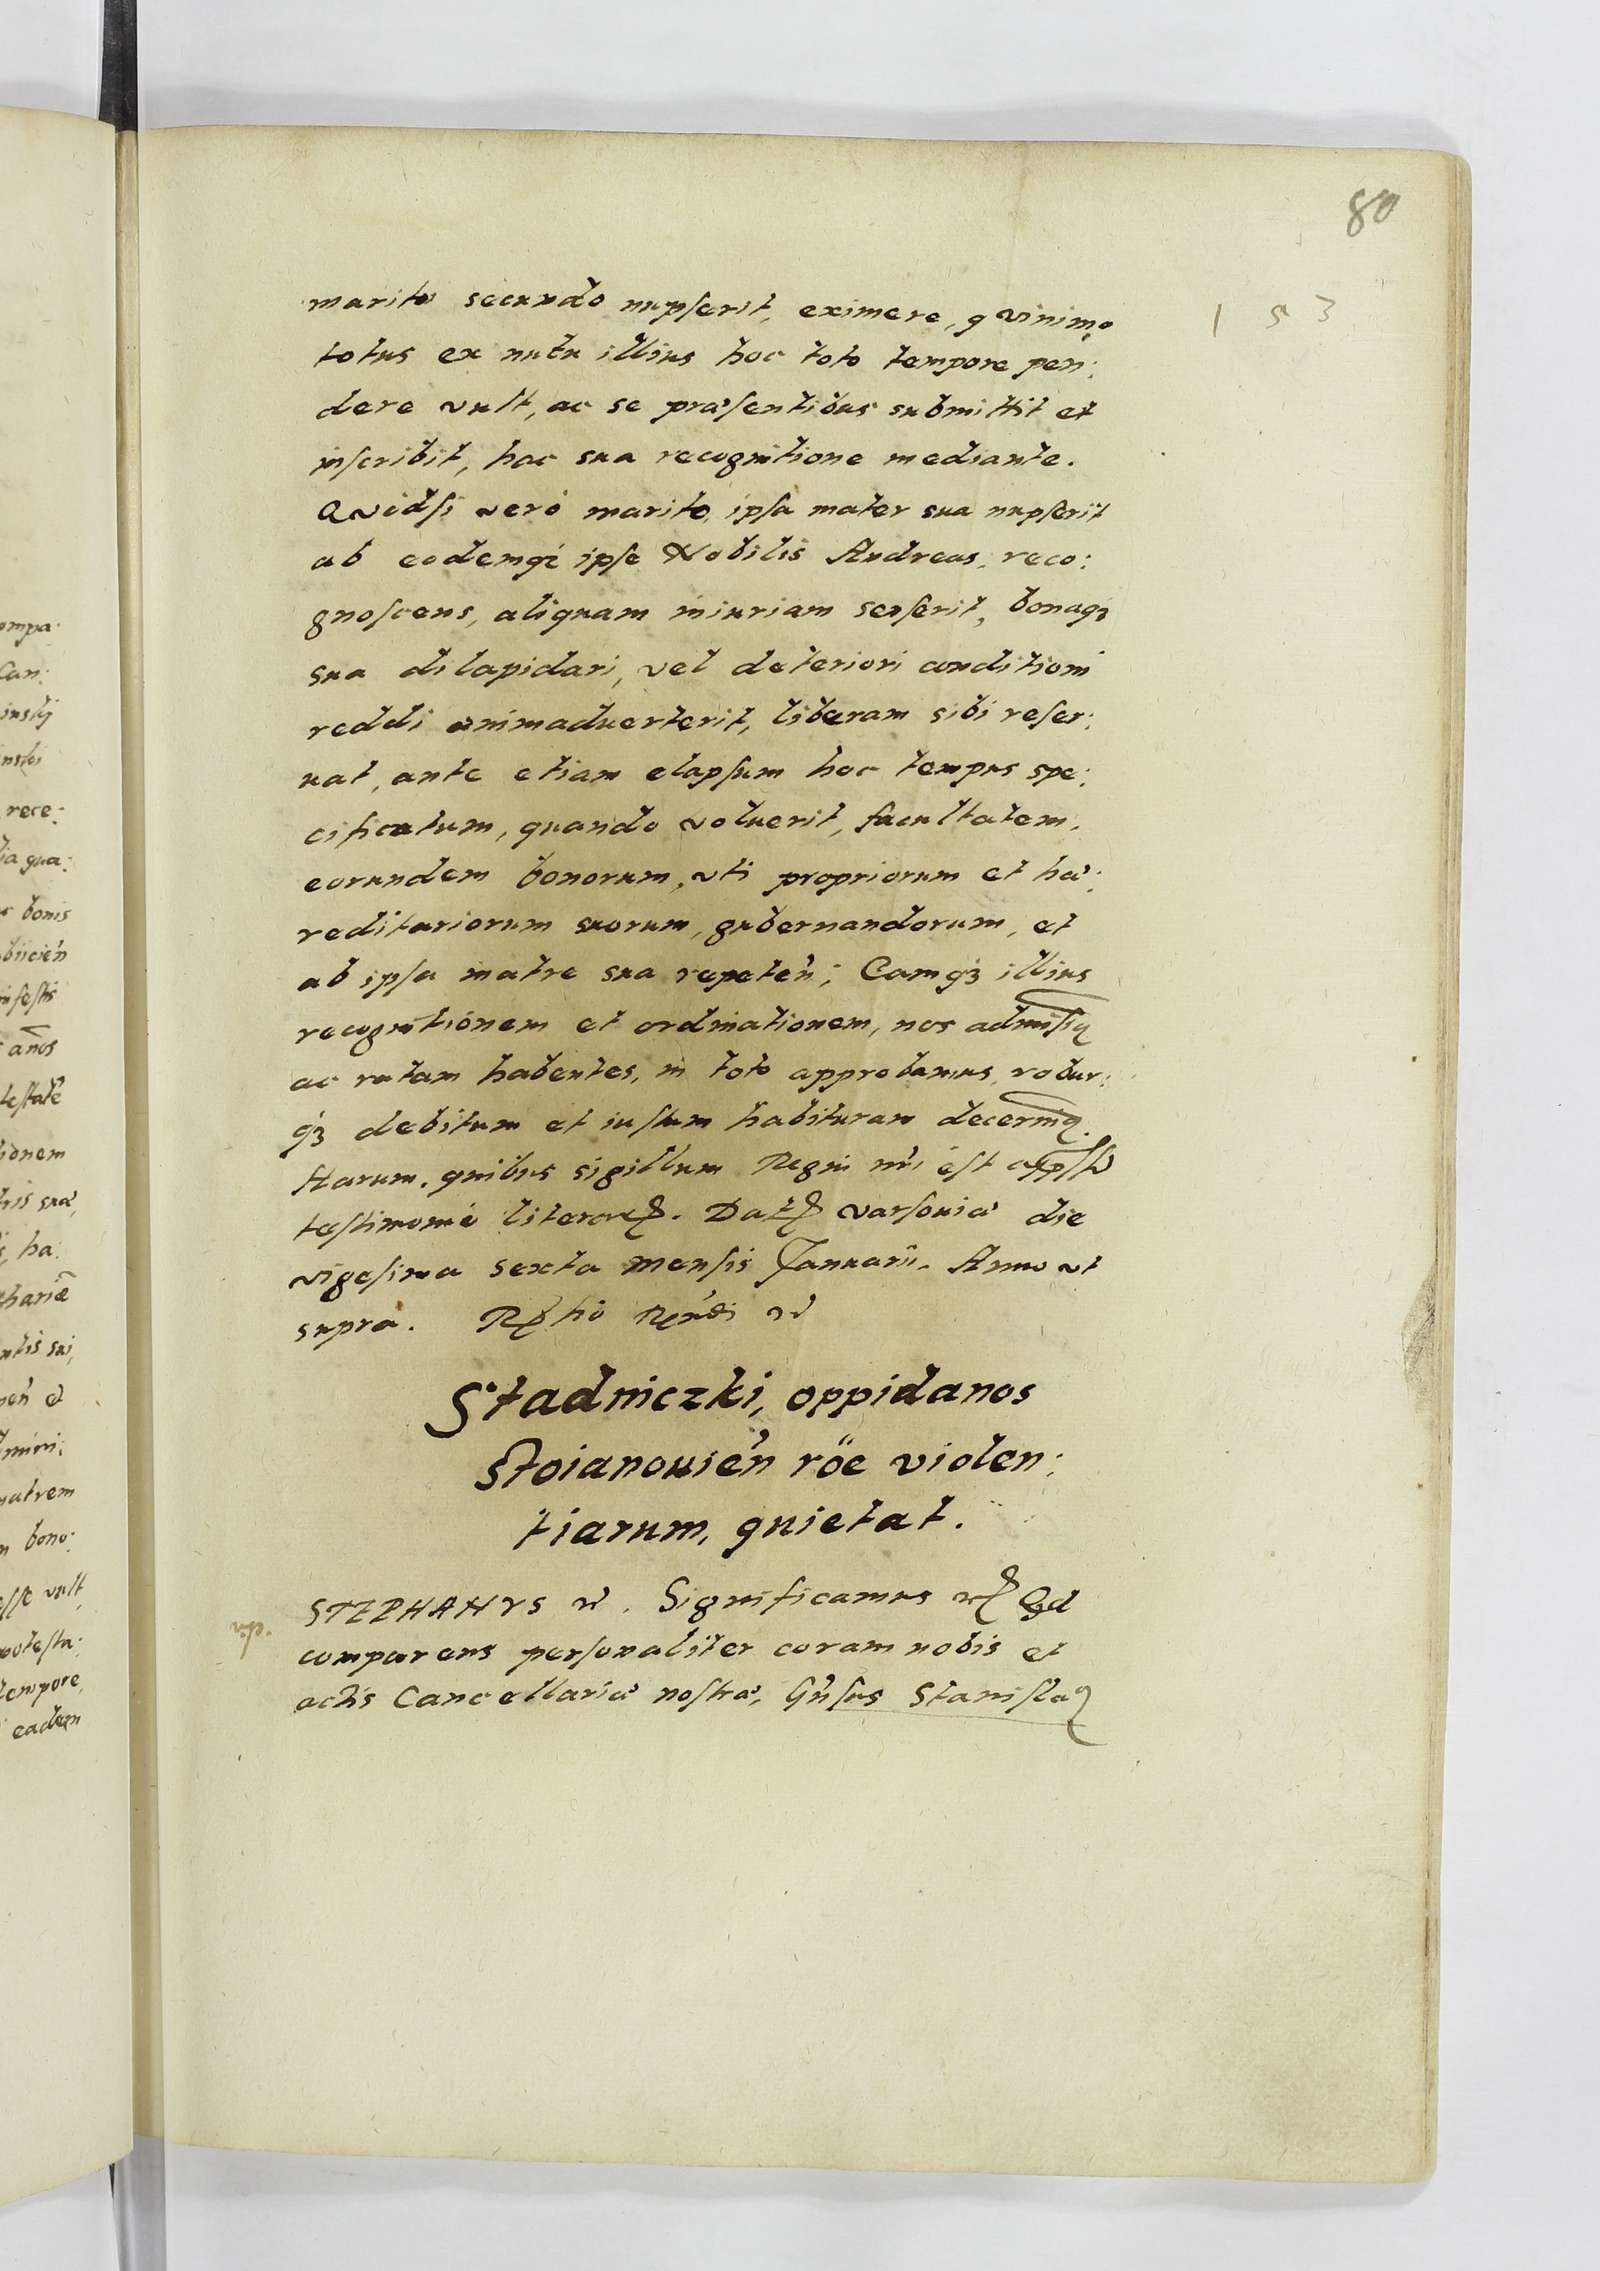 80
153
marito secundo nupserit, eximere, qvinimo
totus ex nutu illius hoc toto tempore pen:
dere vult, ac se præsentibus submittit et
inscribit, hac sua recognitione mediante.
Qvodsi verò marito, ipsa mater sua nupserit
ab eodemq́ ipse Nobilis Andreas, reco:
gnoscens, aliquam iniuriam senserit, bonaqꝫ
sua dilapidari, vel deteriori conditioni
reddi animaduerterit, liberam sibi reser:
uat, ante etiam elapsum hoc tempus spe:
cificatum, quando voluerit, facultatem,
eorundem bonorum, vti propriorum et hæ:
reditariorum suorum, gubernandorum, et
ab ipsa matre sua repeteń; Eamqꝫ illius
recognitionem et ordinationem, nos admisimꝰ
ac ratam habentes, in toto approbamus, robur:
qꝫ debitum et iustum habituram decernimꝰ.
Harum, quibus sigillum Regni nr̃i est
testimonio literarꝝ. Datꝝ varsouiæ die
vigesima sexta mensis Januarii. Anno vt
supra.
Stadniczki, oppidanos
Stoianouień rõe violen:
tiarum, quietat.
STEPHANVS etc. Significamus etc. Qd
comparens personaliter coram nobis et
actis Cancellariæ nostræ, Gńsus Stanislaꝰ
ompa:
Can:
rece:
ia qua:
bonis
biicień
infestis
años
testatẽ
ionem
tris suæ,
, ha:
chariæ
ntis sui,
neń et
mini:
matrem
m bono:
esse vult,
potesta:
tempore,
eadem